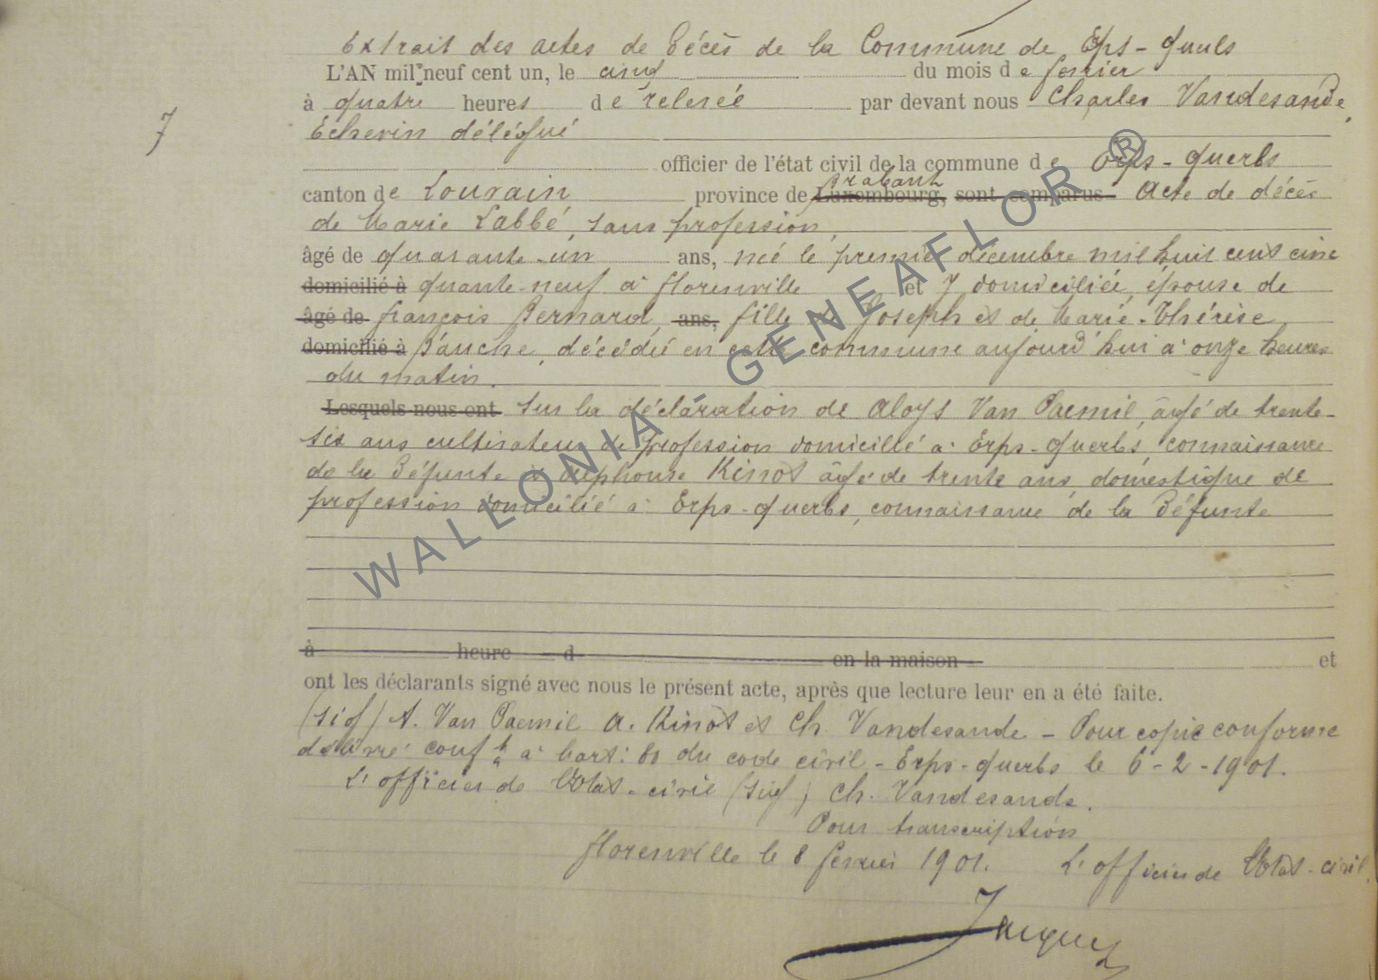 Extrait des actes de Décès de la Commune de Erps-Querbs
L'AN mil neuf cent un, le cinq du mois de février
7
à quatre heures de relevée par devant nous Charles Vandesande,
Echevin délégué
officier de l'état civil de la commune de Erps-Querbs
Brabant
canton de Louvain province de Luxembourg, sont comparus Acte de décès
de Marie Labbé, sans profession,
âgé de quarante-un ans, née le premier décembre mil huit cent cinq
domicilié à quante-neuf à Florenville et y domiciliée, épouse de
âgé de françois Bernard, ans, fille de Joseph et de Marie-Thérèse
domicilié à décédée en cette commune aujourd'hui à onze heures
du matin.
Lesquels nous ont sur la déclaration de Aloys Van Paemil, âgé de trente-
six ans cultivateur de profession domicilié à Erps-Querbs, connaissance
de la Défunte et Alphonse Kinot âgé de trente ans domestique de
profession domicilié à Erps-Querbs, connaissance de la Défunte
à heure d en la maison et
ont les déclarants signé avec nous le présent acte, après que lecture leur en a été faite.
(sig) A. Van Paemil A. Kinot et Ch. Vandesande - Pour copie conforme
délivré conft à l'art: 80 du code civil - Erps-Querbs le 6-2-1901.
L'officier de l'Etat-civil (sig) Ch. Vandesande.
Pour transcription
Florenville le 8 février 1901. L'officier de l'Etat-civil,
WALLONIA - GENEAFLOR ®